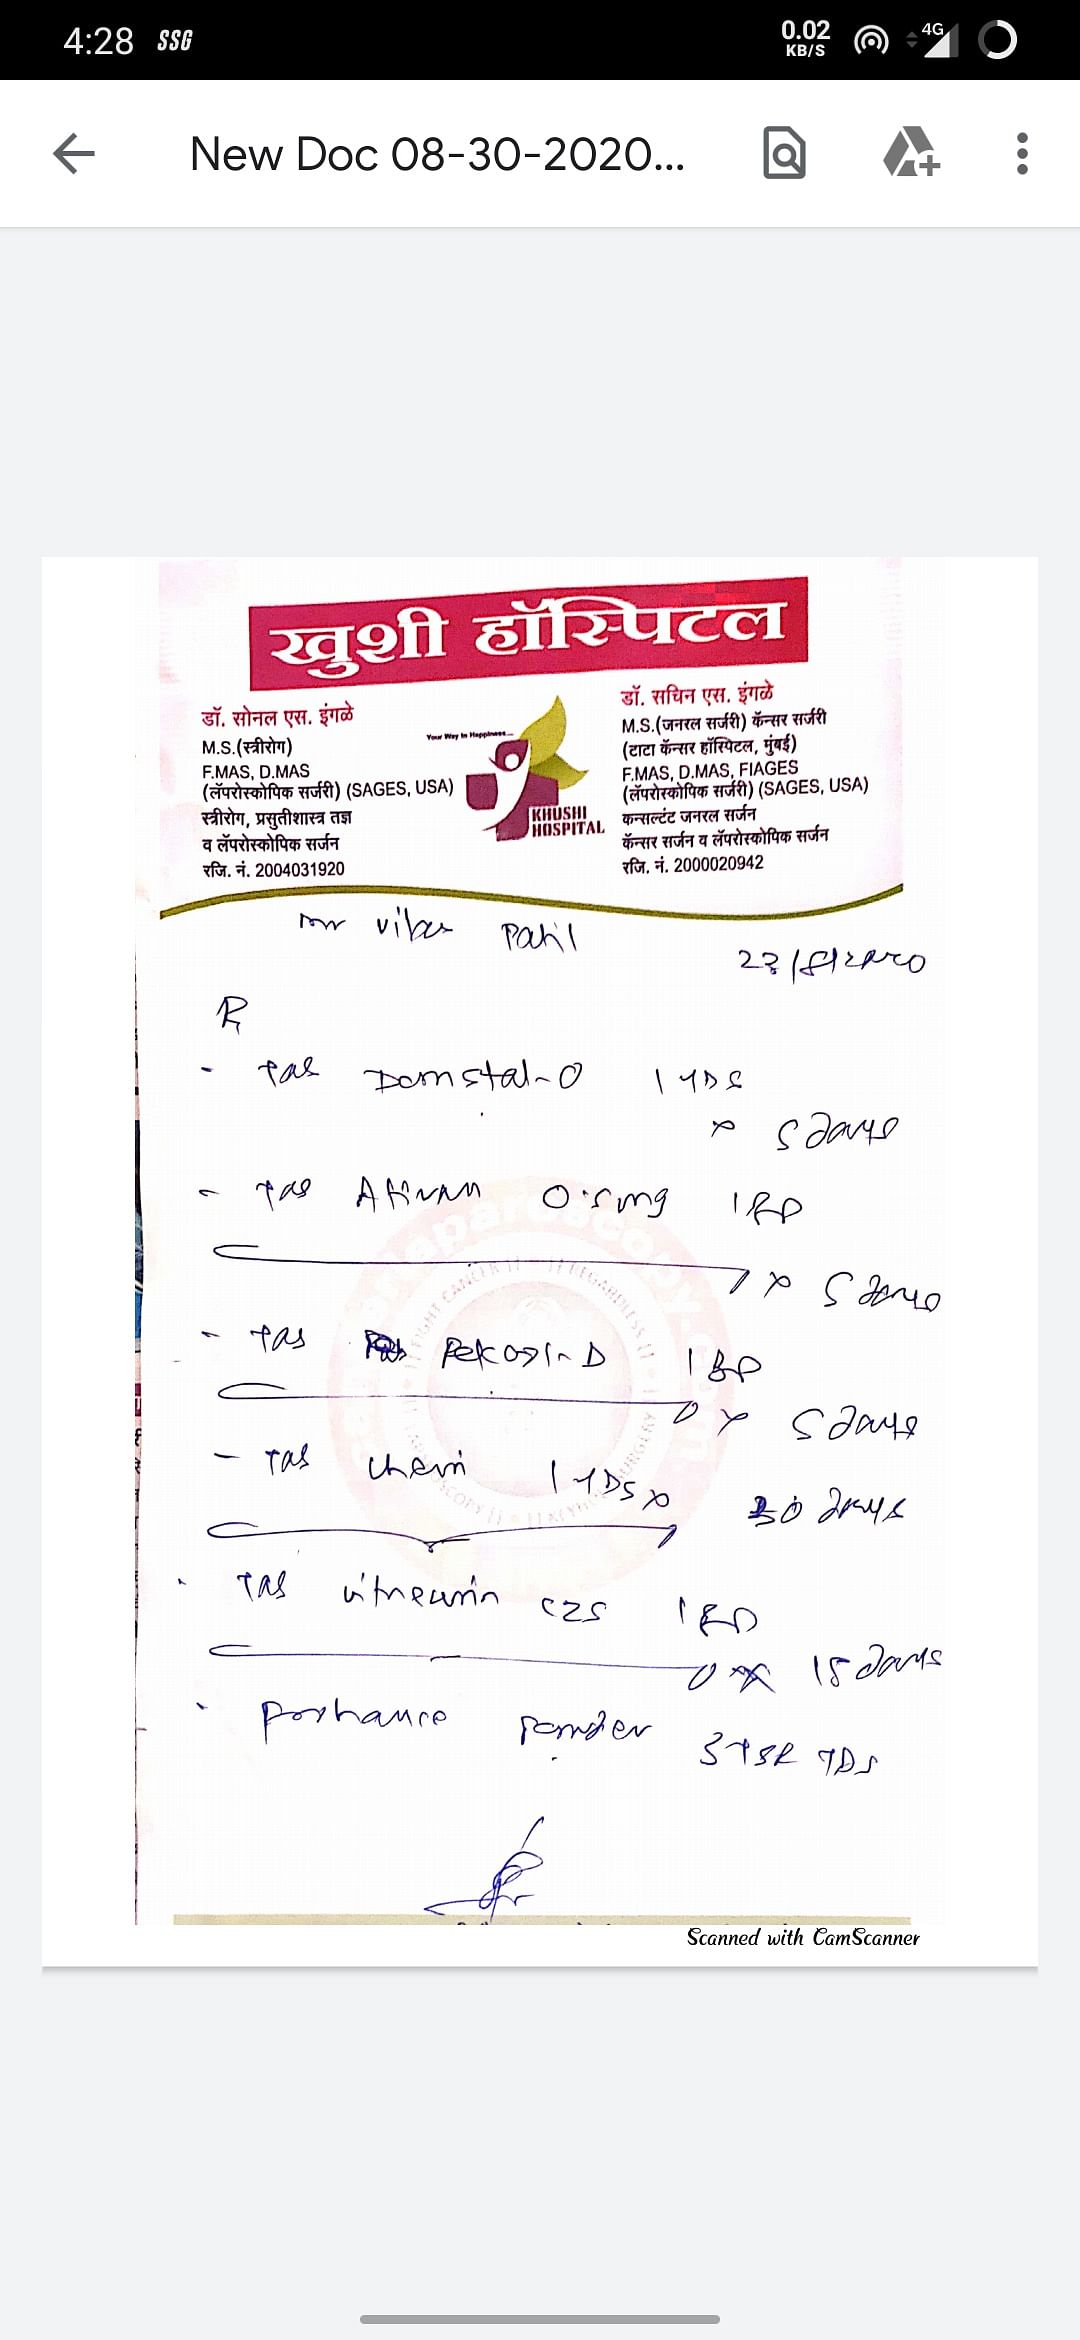 4:28 SSG 0.02 KB/S 4G
New Doc 08-30-2020...
खुशी हॉस्पिटल
डॉ. सोनल एस. इंगळे
M.S.(स्त्रीरोग)
F.MAS, D.MAS
(लॅपरोस्कोपिक सर्जरी) (SAGES, USA)
स्त्रीरोग, प्रसुतीशास्त्र तज्ञ
व लॅपरोस्कोपिक सर्जन
रजि. नं. 2004031920
Your Way to Happiness....
KHUSHI
HOSPITAL
डॉ. सचिन एस. इंगळे
M.S.(जनरल सर्जरी) कॅन्सर सर्जरी
(टाटा कॅन्सर हॉस्पिटल, मुंबई)
F.MAS, D.MAS, FIAGES
(लॅपरोस्कोपिक सर्जरी) (SAGES, USA)
कन्सल्टंट जनरल सर्जन
कॅन्सर सर्जन व लॅपरोस्कोपिक सर्जन
रजि. नं. 2000020942
Mr Patil
R
- Tab Domstal-O 1 TDS
x 5 days
- Tab Ativan 0.5mg 1 BD
x 5 days
- Tab 1 BD
x 5 days
- Tab 1 TDS x days
Tab 1 BD
x 15 days
powder TDS
Scanned with CamScanner